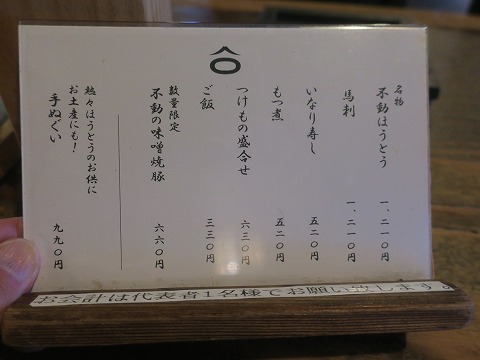 名物
不動ほうとう 一、二一〇円
馬刺 一、二一〇円
いなり寿し 五二〇円
もつ煮 五二〇円
つけもの盛合せ 六三〇円
ご飯 三三〇円
数量限定
不動の味噌焼豚 六六〇円
熱々ほうとうのお供に
お土産にも！
手ぬぐい 九九〇円
お会計は代表者1名様でお願い致します。